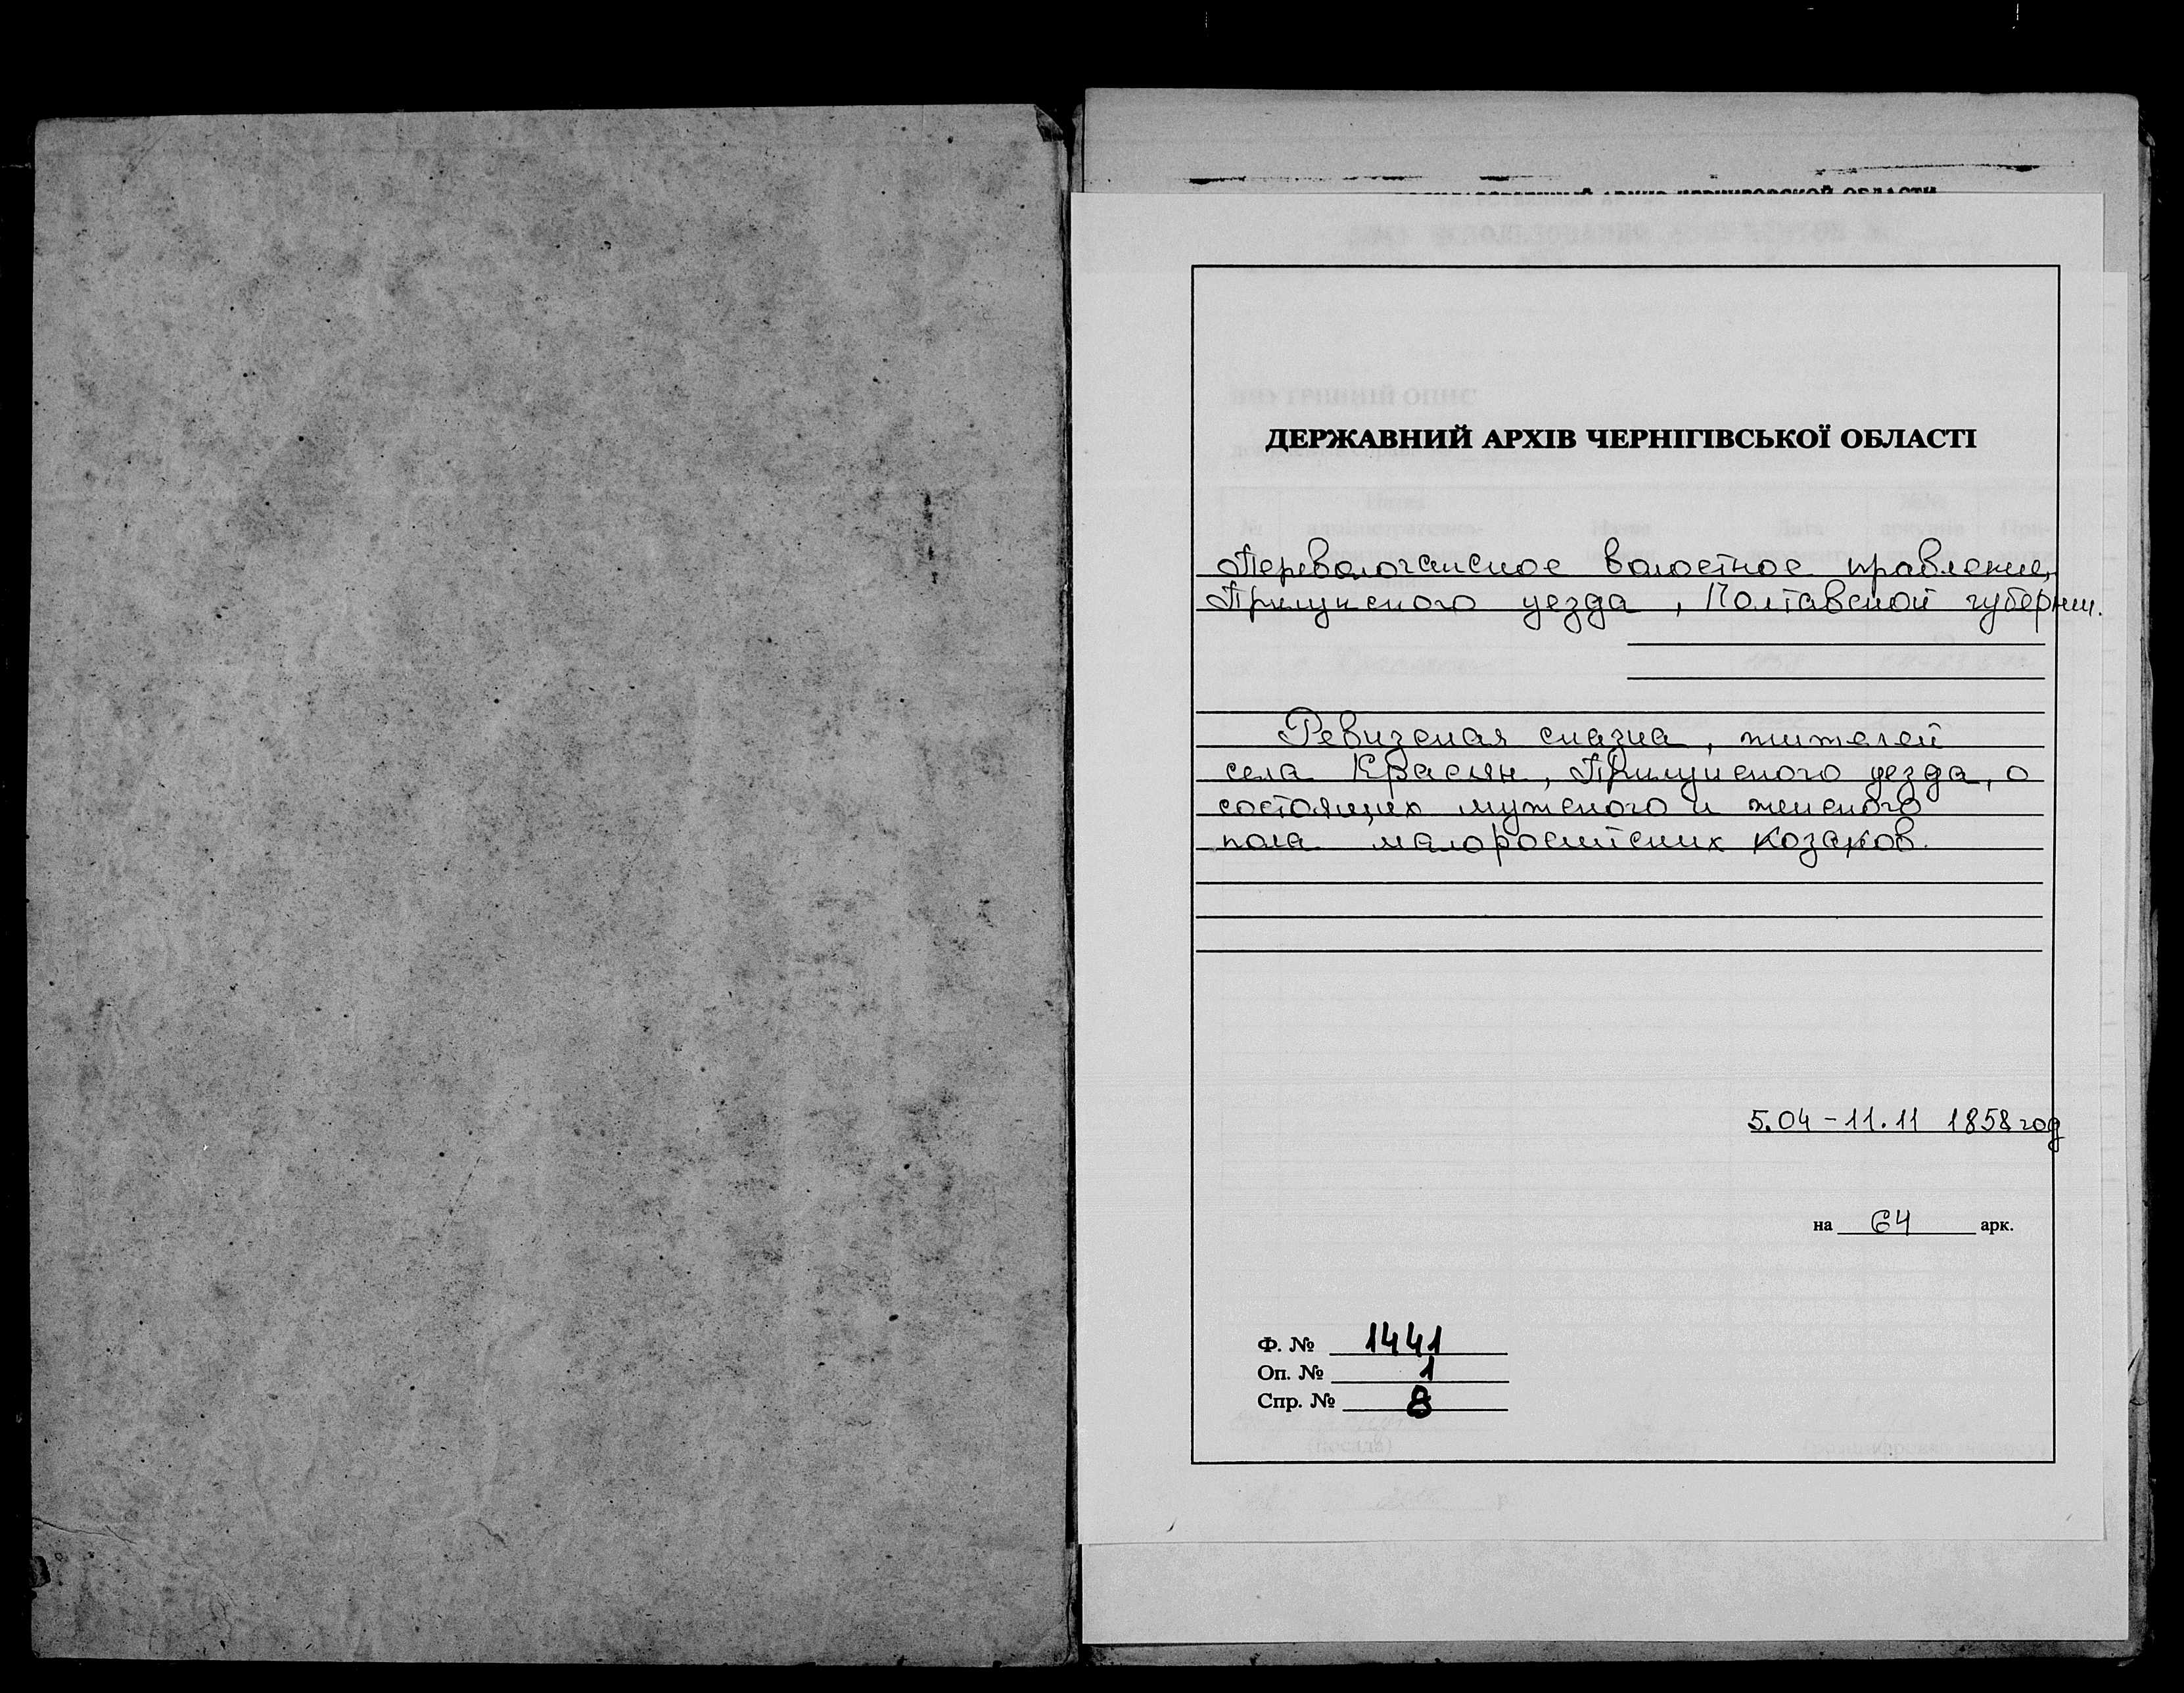 ГОСУДАРСТВЕННЫЙ АРХИВ ЧЕРНИГОВСКОЙ ОБЛАСТИ
ДЕРЖАВНИЙ АРХІВ ЧЕРНІГІВСЬКОЇ ОБЛАСТІ
Переволочанское волостное правление,
Прилукского уезда, Полтавской губернии.
Ревизская сказка, жителей
села Краслян, Прилукского уезда, о
состоящих мужского и женского
пола малоросийских козаков.
5.04-11.11 1858 год
на 64 арк.
Ф. № 1441
Оп. № 1
Спр. № 8